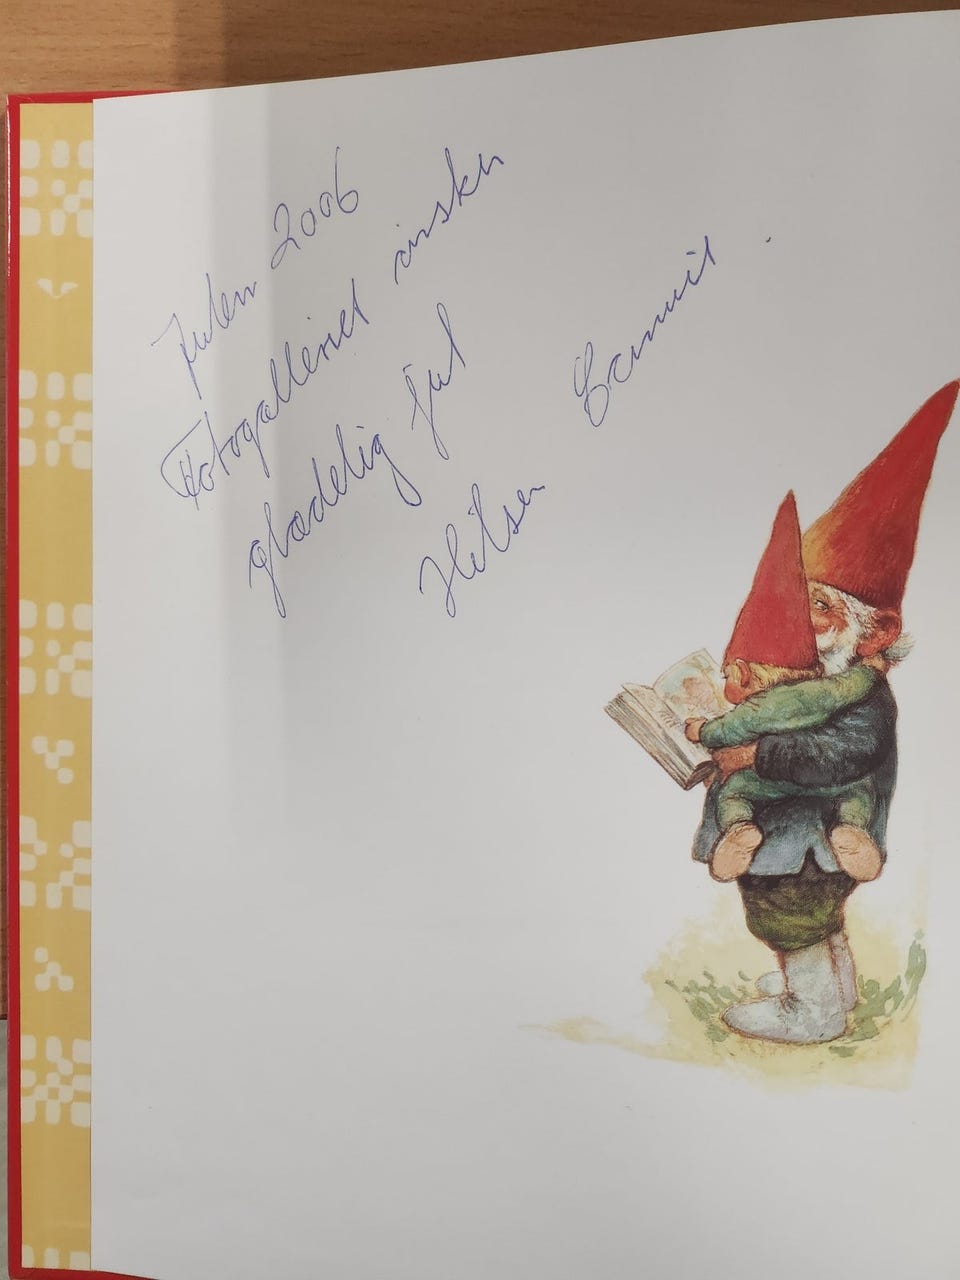 Julen 2006
Fotogalleriet ønsker
glædelig jul
Hilsen